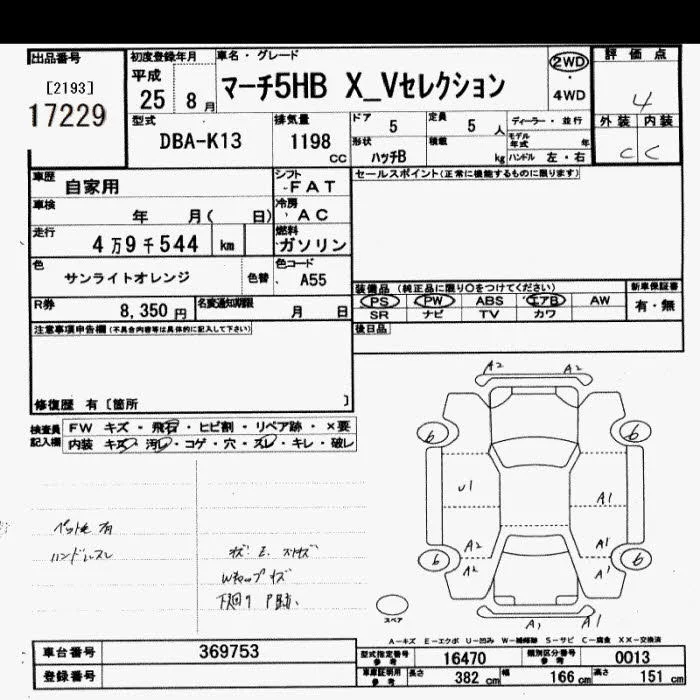 出品番号
[2193]
17229
初度登録年月
平成
25 8月
車名・グレード
マーチ5HB X_Vセレクション
2WD
4WD
評価点
4
外装 内装
C C
型式
DBA-K13
排気量
1198
cc
ドア
5
定員
5 人
ディーラー・並行
モデル年式 年
形状
ハッチB
積載
kg
ハンドル 左・右
車歴
自家用
シフト
FAT
セールスポイント(正常に機能するものに限ります)
車検
年 月( 日)
冷房
AC
走行
4万9千544 km
燃料
ガソリン
色
サンライトオレンジ
色替
色コード
A55
装備品 (純正品に限り○をつけてください)
新車保証書
PS PW ABS エアB AW
有・無
SR ナビ TV カワ
R券
8,350円
名変通知期限
月 日
後日品
注意事項申告欄(不具合内容等は具体的に記入して下さい)
修復歴 有〔箇所 〕
検査員記入欄
FW キズ・飛石・ヒビ割・リペア跡・×要
内装 キズ・汚レ・コゲ・穴・スレ・キレ・破レ
A2 A2
6 6
U1 A1
A2 A1
6 6
A2 A1
A1 A1
スペア
ペット毛 有
ハンドルスレ
Wキャップ キズ
A-キズ E-エクボ U-凹み W-補修跡 S-サビ C-腐食 XX-交換済
車台番号
369753
登録番号
型式指定番号
参考
16470
類別区分番号
参考
0013
車庫証明用
参考
長さ 382 cm
幅 166 cm
高さ 151 cm